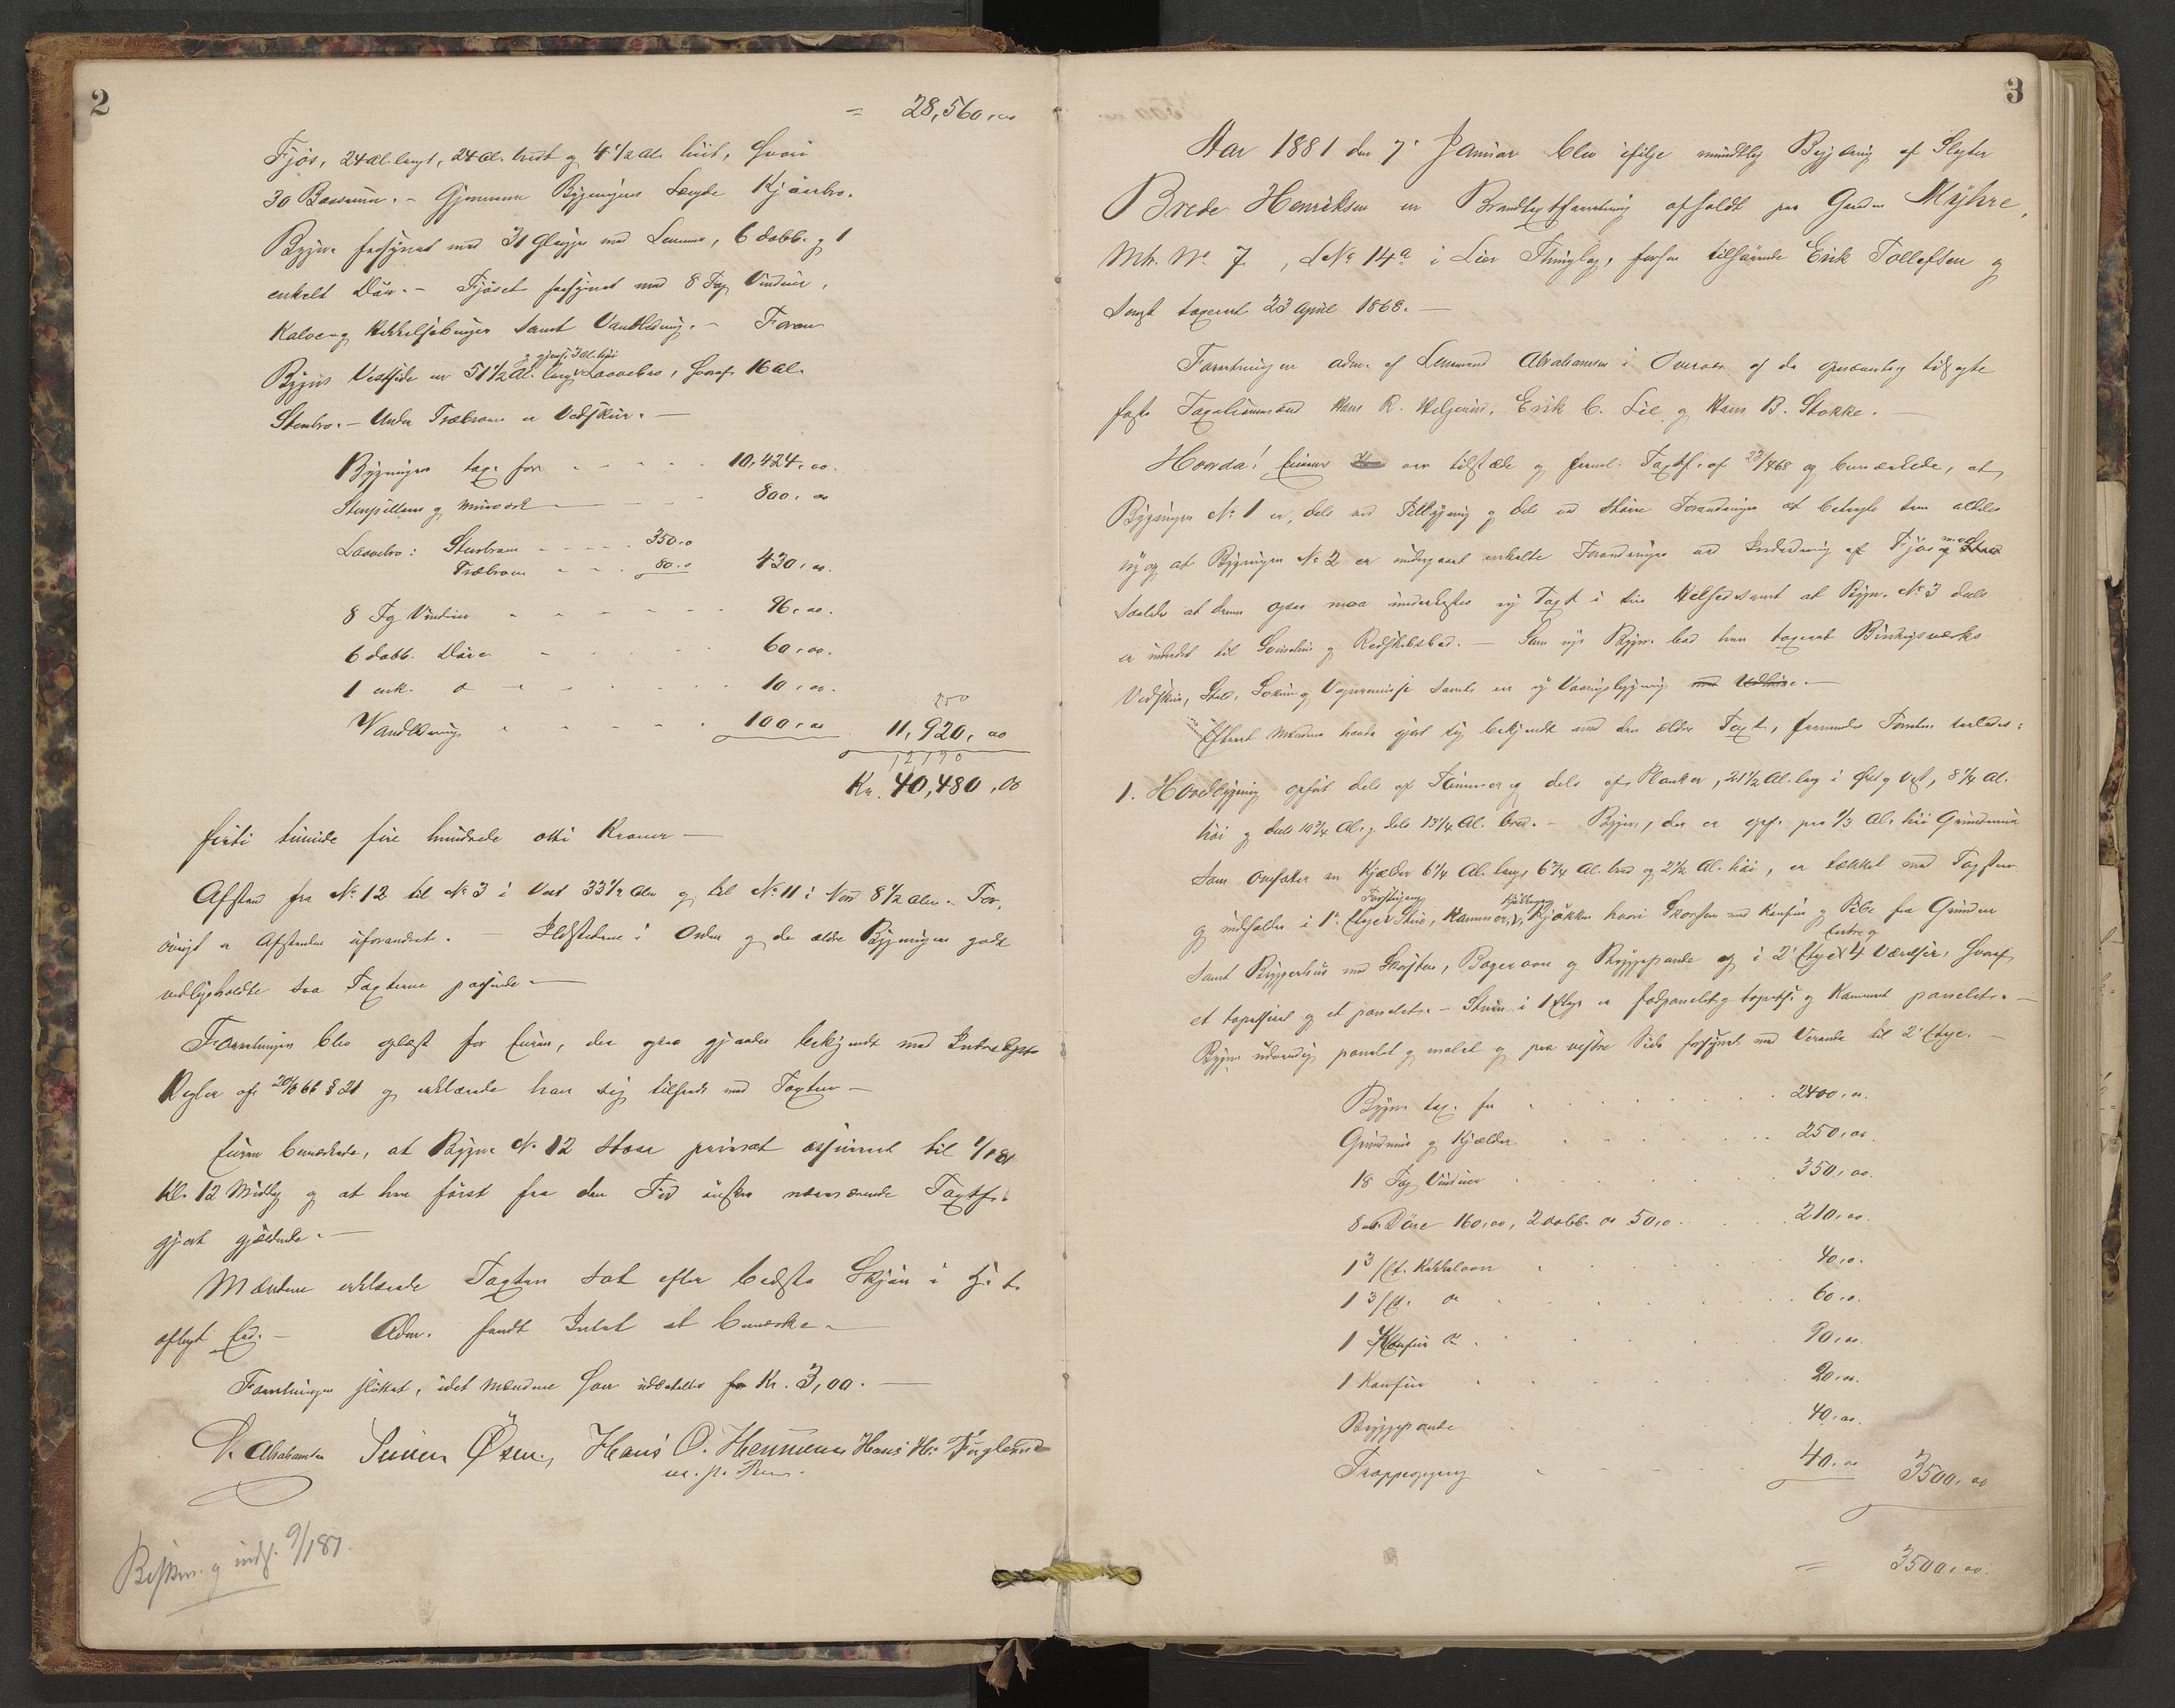 2
= 28,560,00
Fjös, 24 Al. langt, 24 Al. bredt og 4 1/2 Al. høit, hvori
30 Baasrum. - Gjennem Bygningens Længde Kjørebro.
Bygn. forsynet med 31 Glugger med Lemme, 6 dobb. og 1
enkelt Dør. - Fjöset forsynet med 8 Fag Vinduer,
Kalve og Hakkelsebinger samt Vandledning. - Foran
og gjens. 3 Al. høi
Bygns Vestside er 51 1/2 Al. lang Laavebro, hvoraf 16 Al.
Stenbro. - Under Træbroen er Vedskur. -
Bygningen tax. for 10,424,00.
Stenpillare og Murværk 800,00
Laavebro: Stenbroen 350,0
Træbroen 80,0 430,00.
8 Fag Vinduer 96,00.
6 dobb. Döre 60,00.
1 enk. do 10,00.
Vandledning 100,00 11,920,00
12170
Kr. 40,480,00
firti tusinde fire hundrede otti Kroner -
Afstand fra No 12 til No 3 i Vest 33 1/2 Alen og til No 11 i Nord 8 1/2 Alen. For-
övrigt er Afstandene uforandret. - Ildstederne i Orden og de ældre Bygninger godt
vedligeholdte saa Taxterne passende -
Forretningen blev oplæst for Eieren, der ogsaa gjordes bekjendt med
Regler af § 21 og erklærede han sig tilfreds med Taxten -
Eieren bemærkede, at Bygn. No 12 staar privat assureret til 9/1 81
kl. 12 Middag og at han först fra den Tid önsker nærværende Taxtf.
gjort gjældende. -
Mændene erklærede Taxten sat efter bedste Skjön i H. t.
aflagt Ed. - Adm. fandt Intet at bemærke -
Forretningen sluttet, idet Mændene hver udbetaltes Kr. 3,00. -
Abrahamsen Hans O. Hans H. Fuglerud
m. p. Pen.
Beskr. og indf. 9/1 81.
3
Aar 1881 den 7de Januar blev ifølge mundtlig Begjæring af Slagter
Brede Henriksen en Brandtaxtforretning afholdt paa Gaarden Myhre,
Mtr. No 7, LNo 14a i Lier Thinglag, forhen tilhørende Erik Tollefsen og
sidst taxeret 23 April 1868. -
Forretningen adm. af Lensmand Abrahamsen i Overvær af de opnævnte tilsagte
faste Taxationsmænd Hans R. Helgerud, Erik C. Lie og Hans B. Stokke.
Hvorda! Eieren var tilstede og freml. Taxtf. af 23/4 68 og bemærkede, at
Bygningen No 1 er, dels ved Tilbygning og dels ved större Forandringer at betragte som aldeles
ny og at Bygningen No 2 er undergaaet enkelte Forandringer ved Indredning af Fjös med
saaledes at denne ogsaa maa underkastes ny Taxt i sin Helhed samt at Bygn. No 3 dels
er indredet til og Redskabsbod. - Som nye Bygn. bad han taxeret Bindingsværks
Vedskur, Stald, og Vognremisse samt en ny Vaaningsbygning
Efterat Mændene havde gjort sig bekjendt med den ældre Taxt, fremmedes Forretn. saaledes:
1. Hovedbygning opført dels af Tömmer og dels af Planker, 21 1/2 Al. lang i Öst og Vest, 8 1/4 Al.
höi og dels 10 3/4 Al. og dels 13 1/4 Al. bred. - Bygn., der er opf. paa 1/3 Al. höi Grundmur
som omfatter en Kjælder 6 1/4 Al. lang, 6 3/4 Al. bred og 2 1/2 Al. höi, er tækket med Tagsten
Forstugang Kjökkengang
og indeholder i 1ste Etage Stue, Kammer, Kjökken hvori Skorsten med Komfur og Pibe fra Grunden
Entre og
samt Bryggerhus med Skorsten, Bagerovn og Bryggepande og i 2den Etage 4 Værelser, hvoraf
et tapetseret og et panelet. - Stuen i 1 Etage er fodpanelet og tapets. og Kammeret panelet. -
Bygn. udvendig panelet og malet og paa vestre Side forsynet med Veranda til 2den Etage. -
Bygn. tax. for 2400,00.
Grundmur og Kjælder 250,00.
18 Fag Vinduer 350,00.
8 enk. Döre 160,00, 2 dobb. do 50,0. 210,00.
1 3/Et. Kakkelovn 40,0.
1 3/Et. do 60,0.
1 Komfur do 90,00.
1 Komfur 20,00.
Bryggepande 40,00.
Trappegang 40,00 3500,00
= 3500,00.